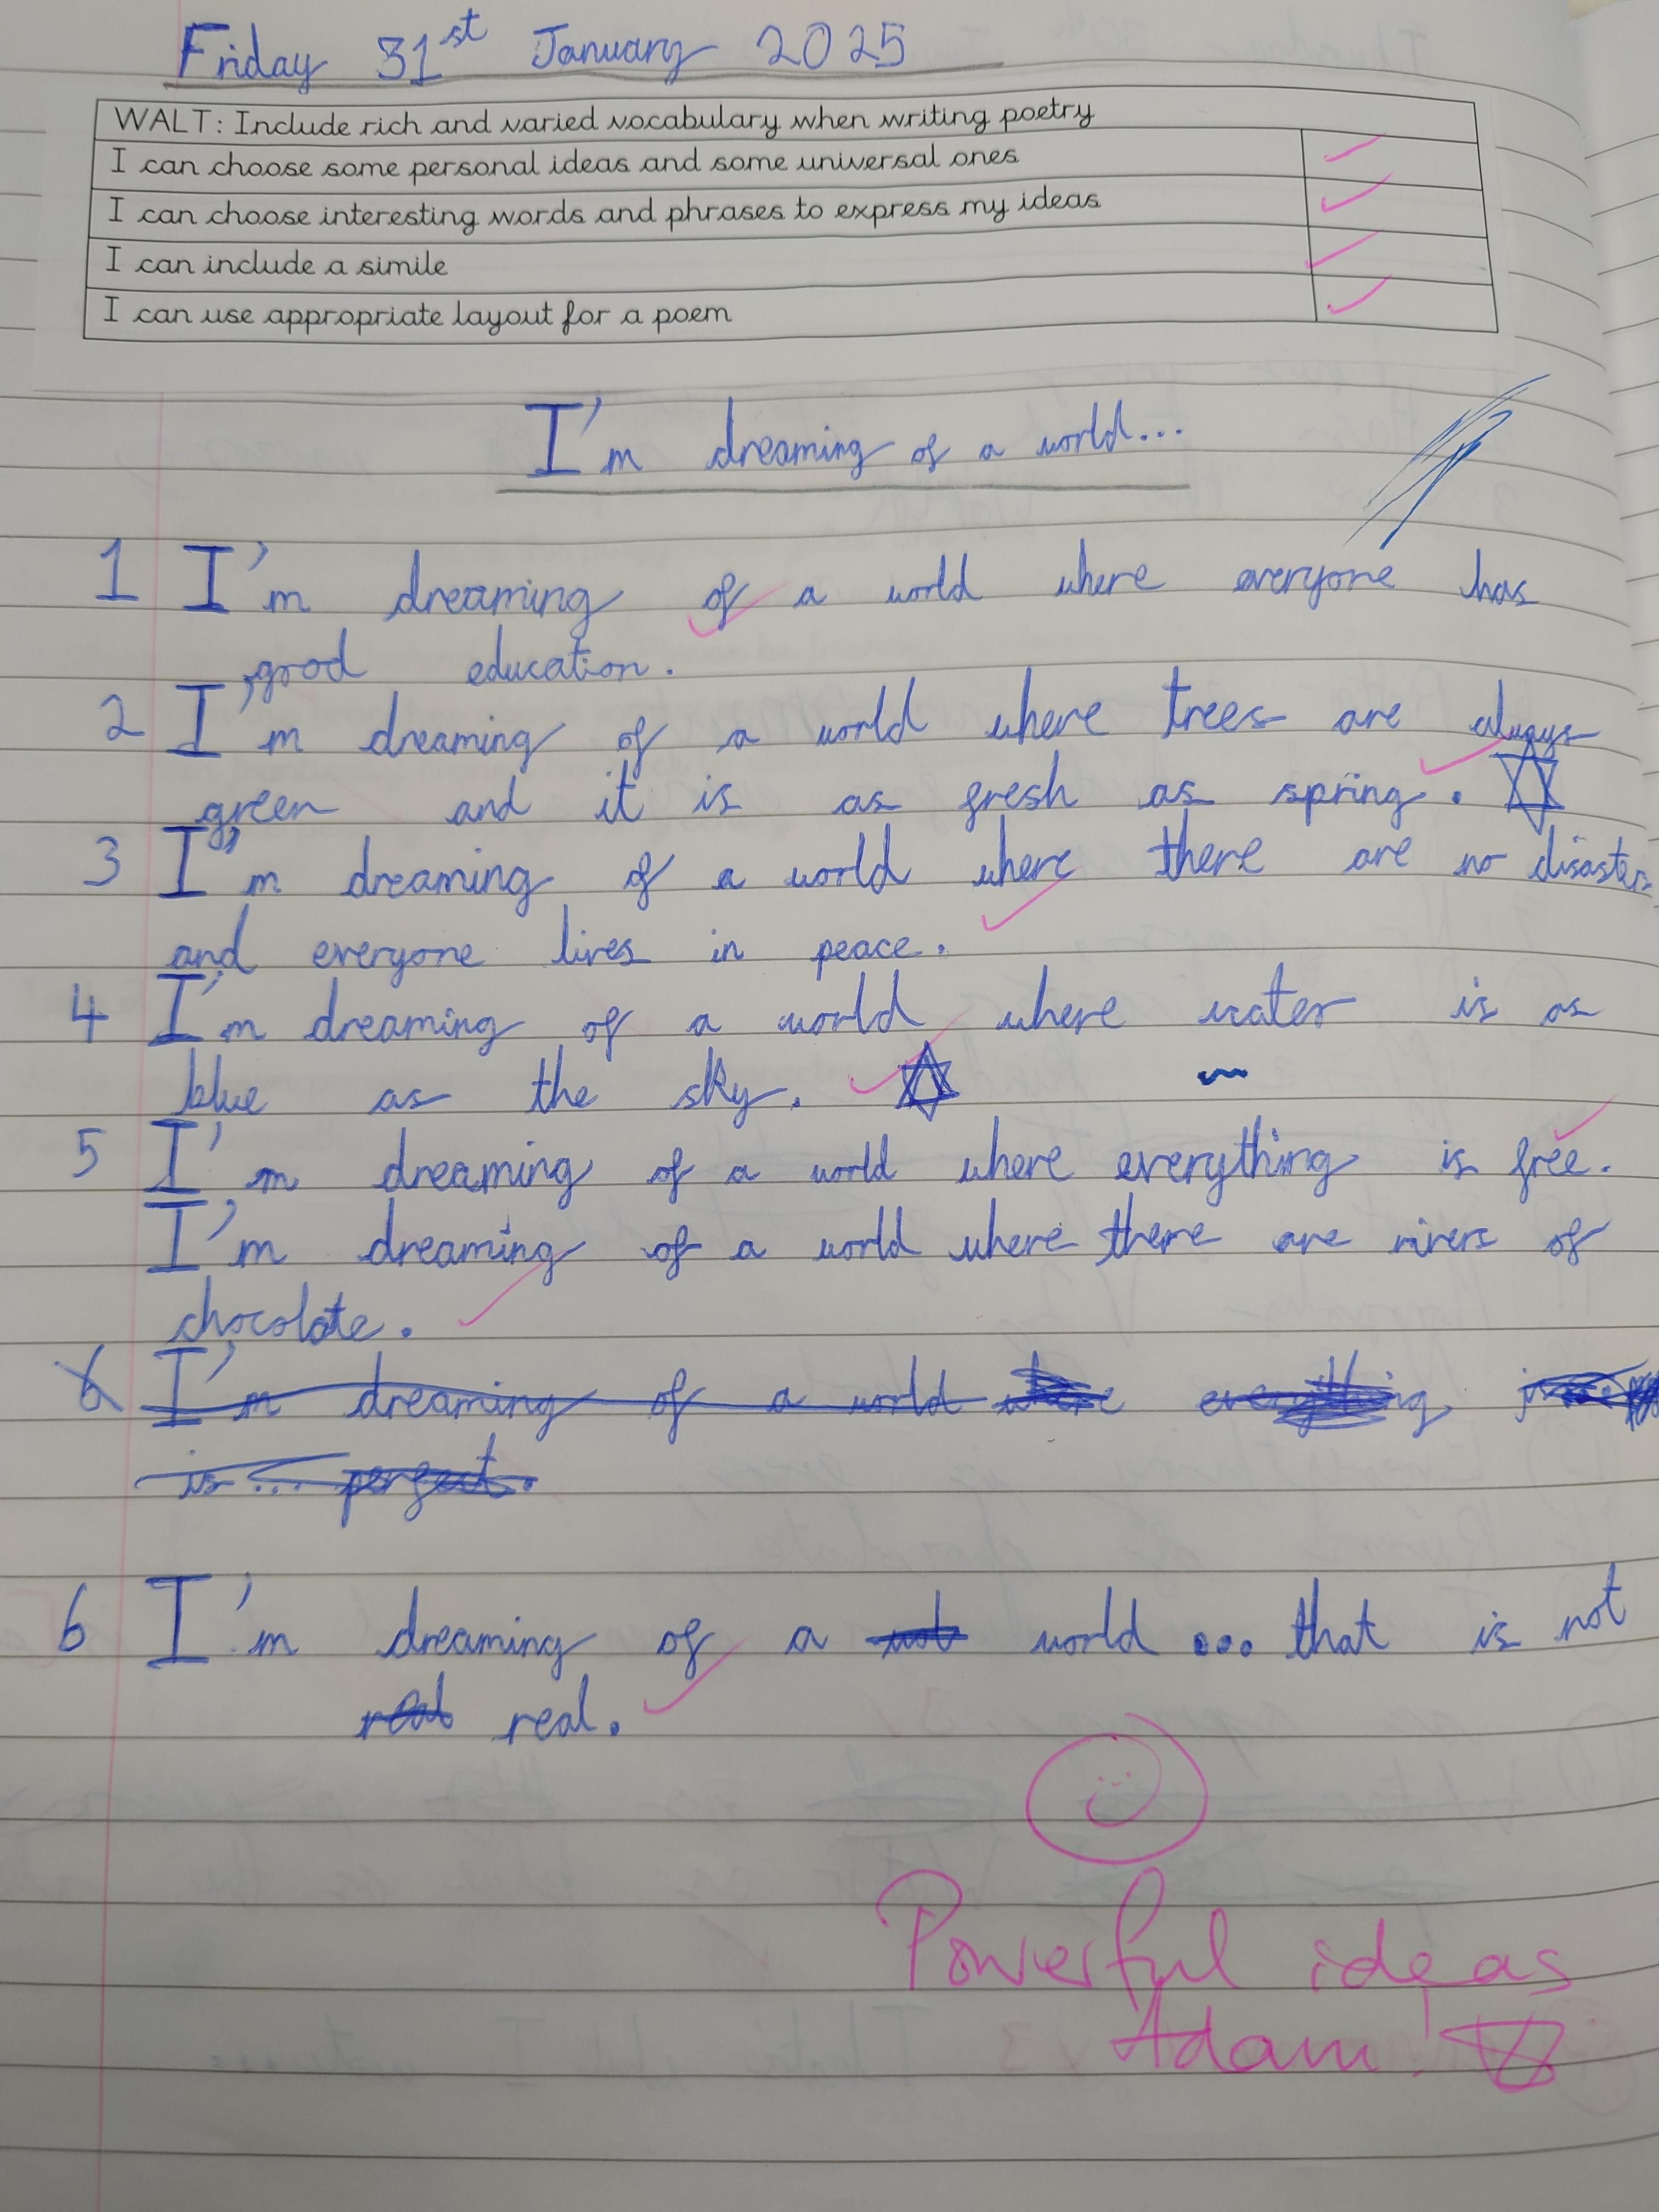 Friday 31st January 2025
WALT: Include rich and varied vocabulary when writing poetry
I can choose some personal ideas and some universal ones
I can choose interesting words and phrases to express my ideas
I can include a simile
I can use appropriate layout for a poem
I'm dreaming of a world...
1 I'm dreaming of a world where everyone has
good education.
2 I'm dreaming of a world where trees are always
green and it is as fresh as spring.
3 I'm dreaming of a world where there are no disasters
and everyone lives in peace.
4 I'm dreaming of a world where water is as
blue as the sky.
5 I'm dreaming of a world where everything is free.
I'm dreaming of a world where there are rivers of
chocolate.
6 I'm dreaming of a world where everything
is ... perfect.
6 I'm dreaming of a world ... that is not
real real.
Powerful ideas
Adam!